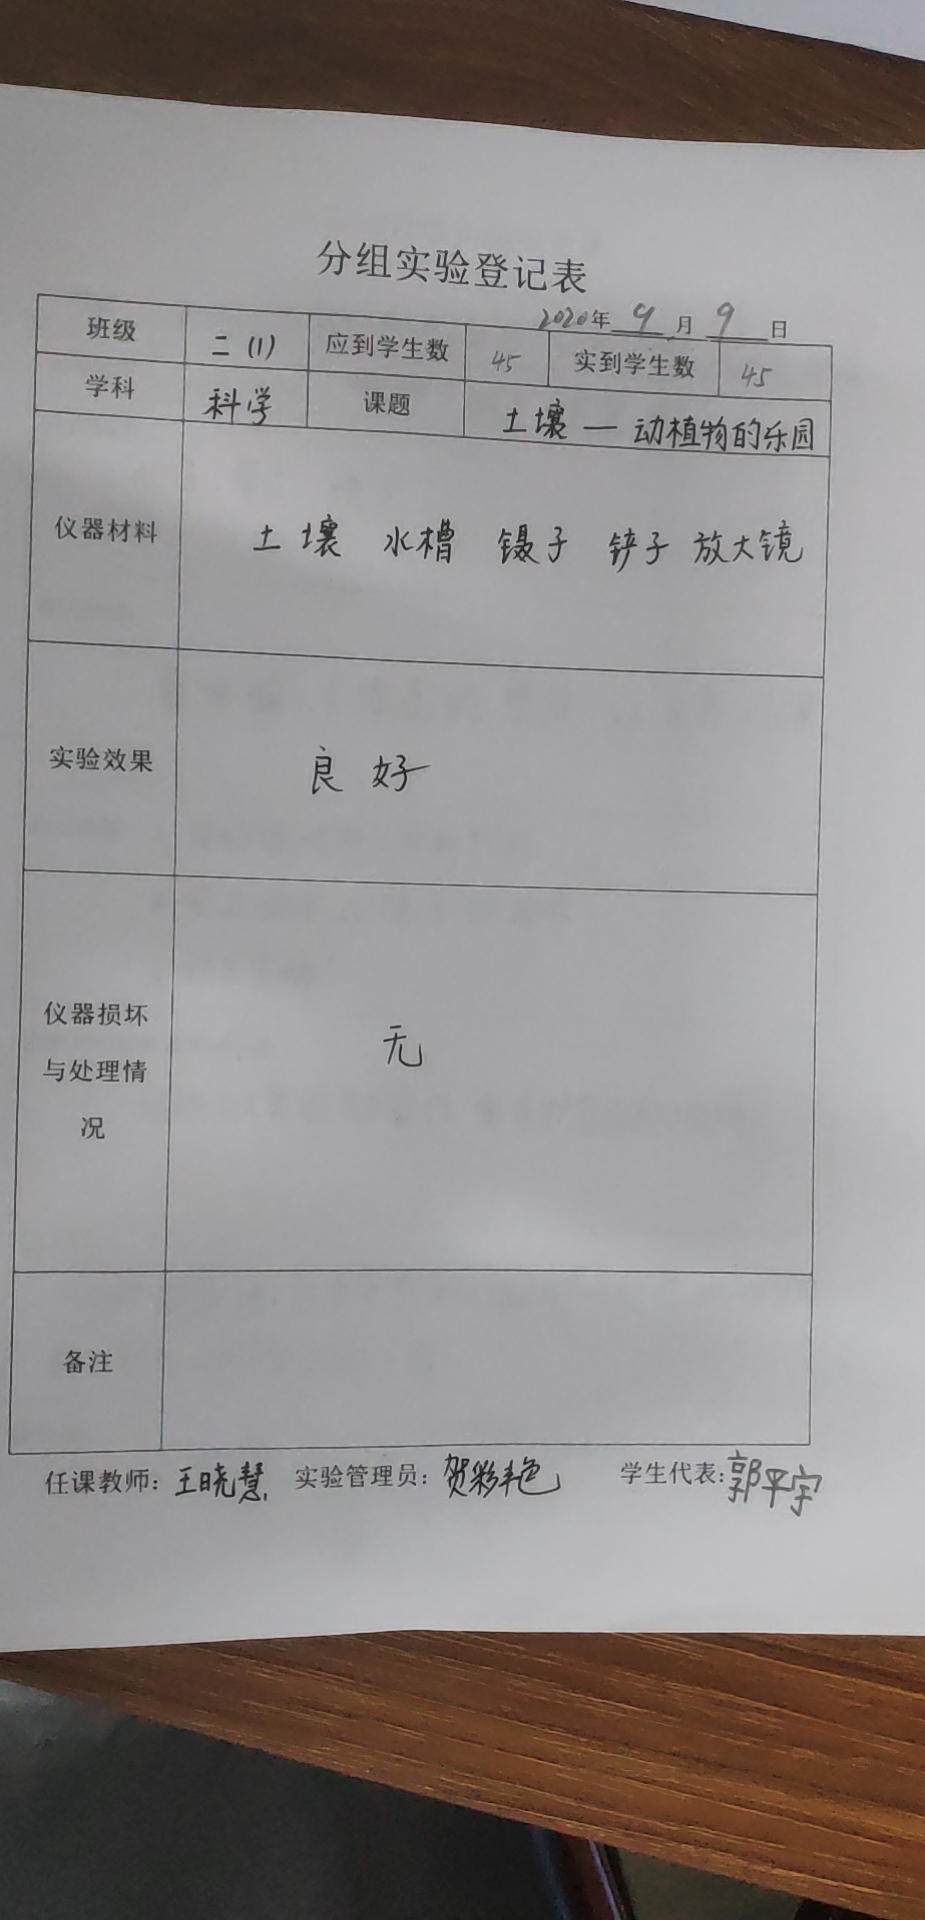 分组实验登记表
2020年 9 月 9 日
班级 二(1) 应到学生数 45 实到学生数 45
学科 科学 课题 土壤—动植物的乐园
仪器材料 土壤 水槽 镊子 铲子 放大镜
实验效果 良好
仪器损坏
与处理情 无
况
备注
任课教师：王晓慧 实验管理员：贺彩艳 学生代表：郭平宇